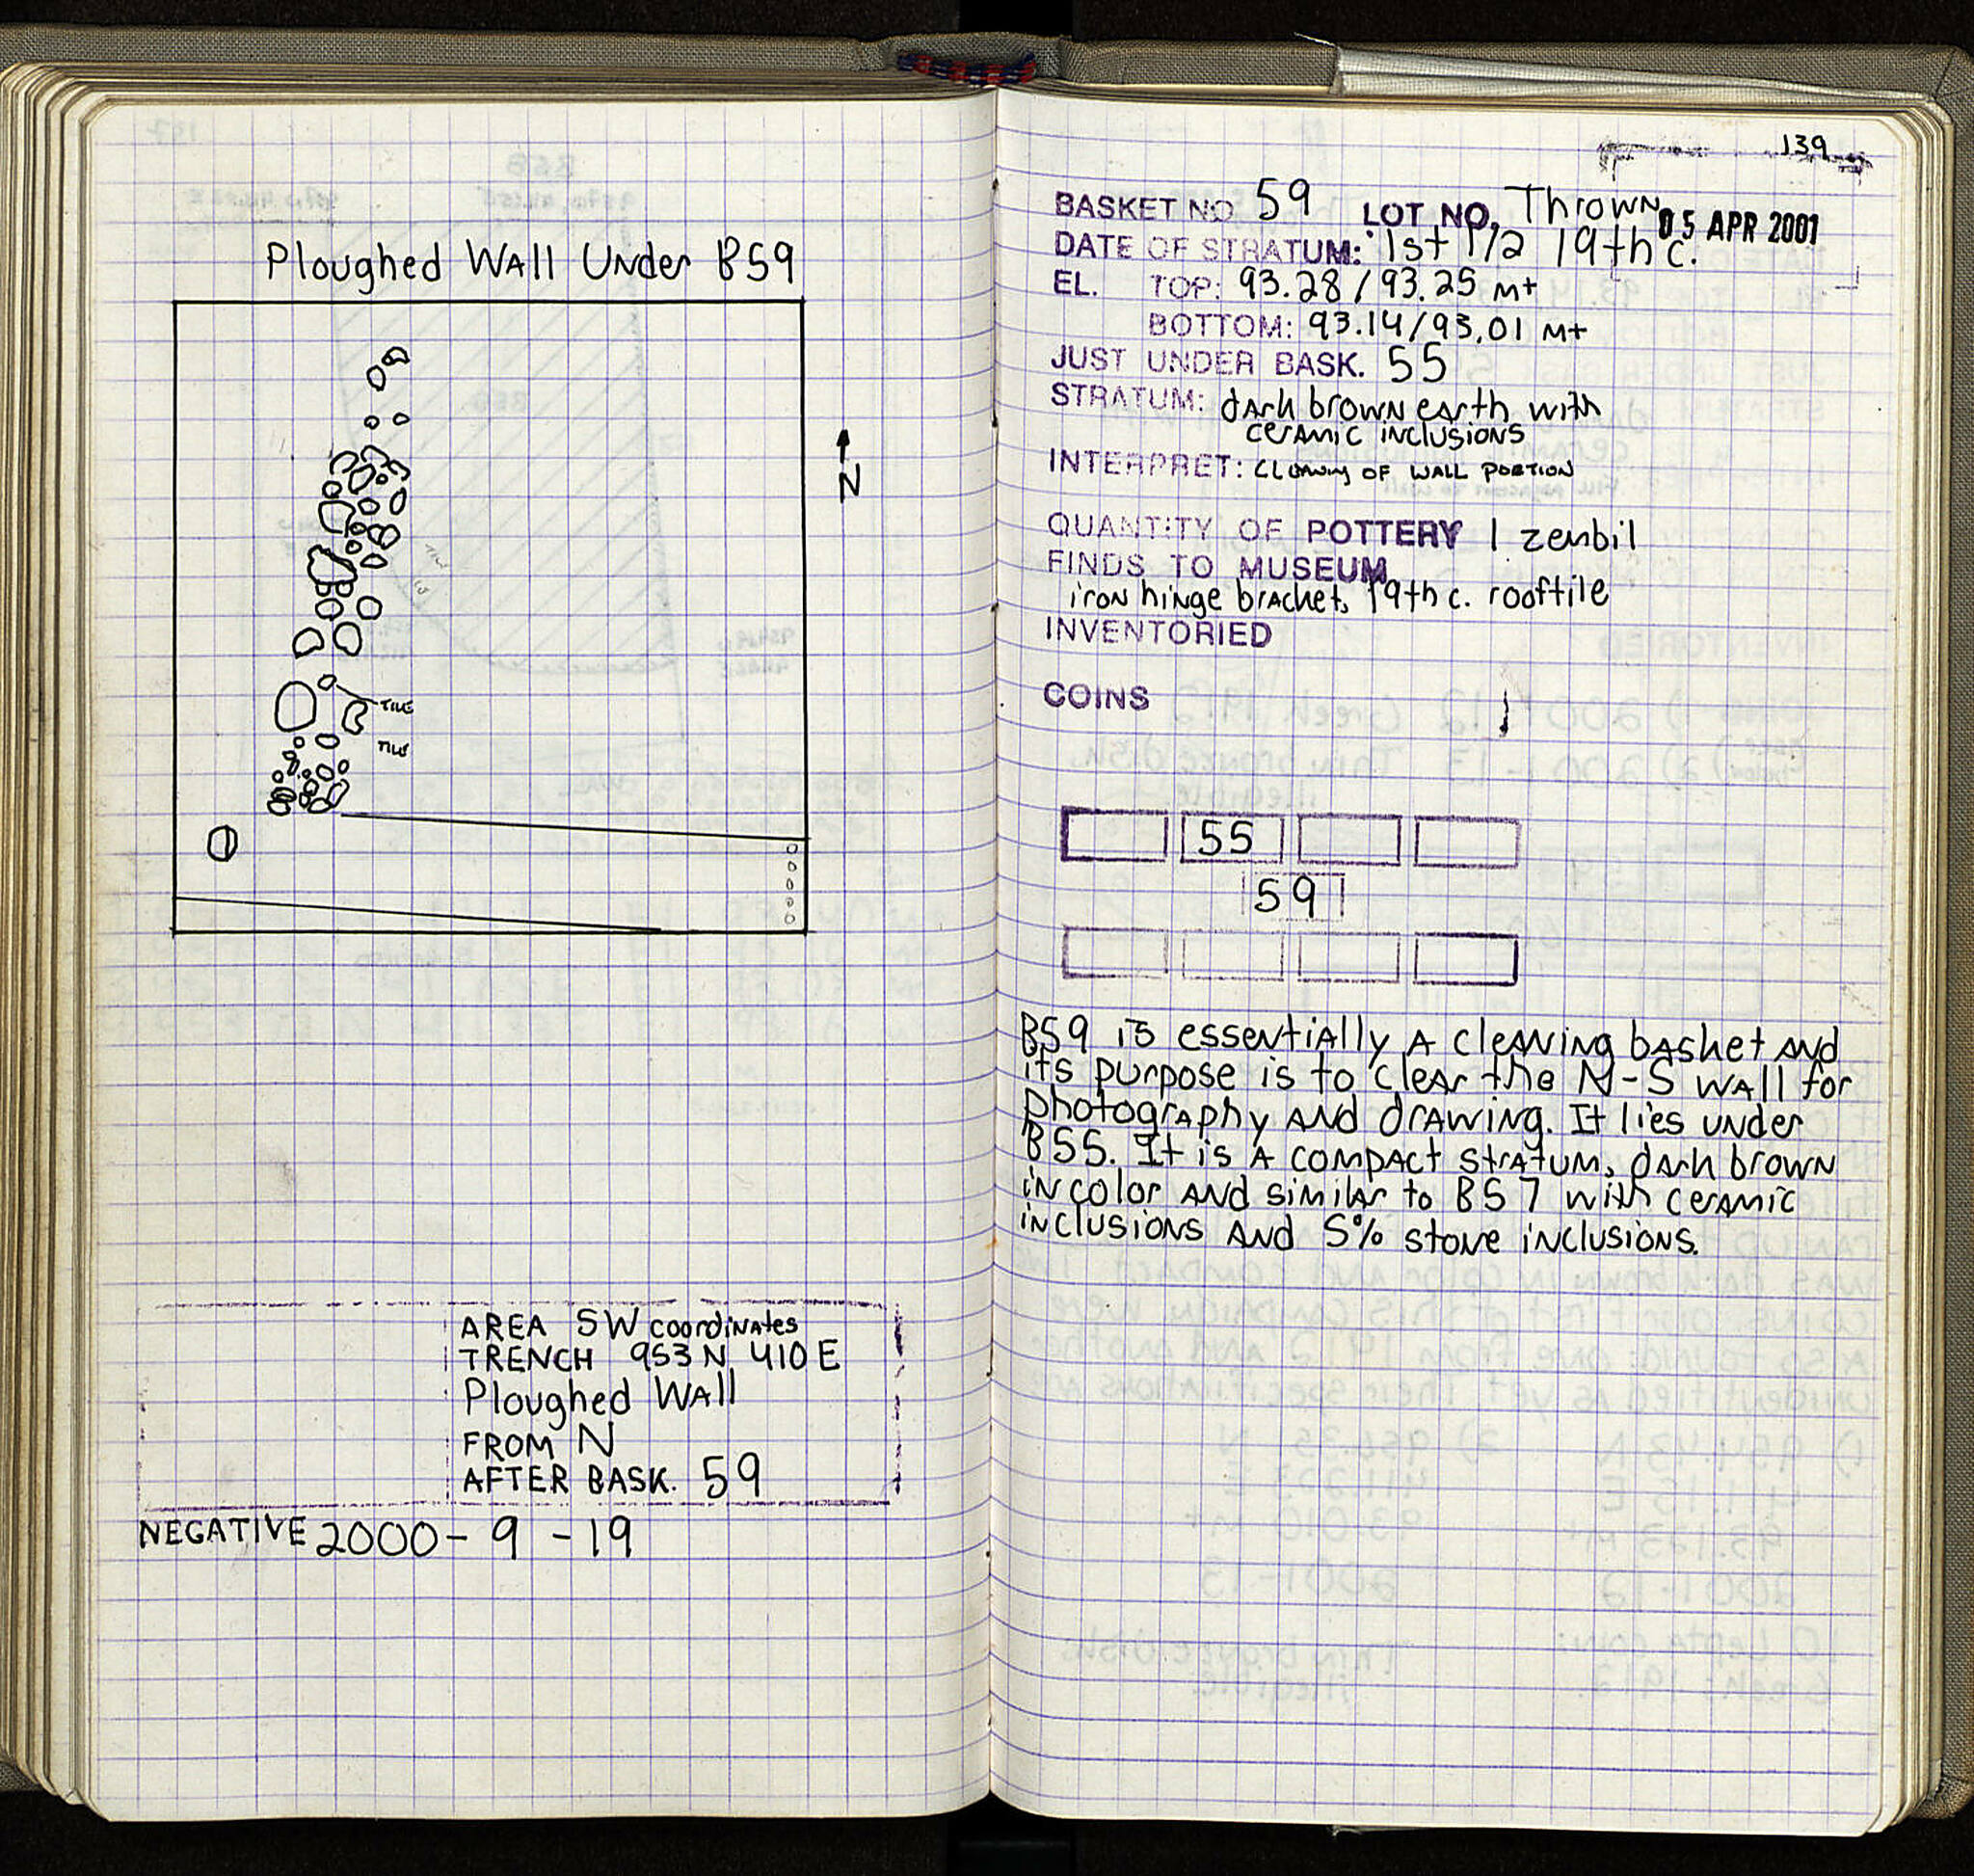 Ploughed Wall Under B59
N
TILE
TILE
AREA SW coordinates
TRENCH 953 N, 410 E
Ploughed Wall
FROM N
AFTER BASK. 59
NEGATIVE 2000-9-19
139
BASKET NO 59 LOT NO. Thrown
05 APR 2001
DATE OF STRATUM: 1st 1/2 19th c.
EL. TOP: 93.28/93.25 m+
BOTTOM: 93.14/93.01 m+
JUST UNDER BASK. 55
STRATUM: dark brown earth with
ceramic inclusions
INTERPRET: cleaning of wall portion
QUANTITY OF POTTERY 1 zembil
FINDS TO MUSEUM
iron hinge bracket, 19th c. rooftile
INVENTORIED
COINS
55
59
B59 is essentially a cleaning basket and
its purpose is to clear the N-S wall for
photography and drawing. It lies under
B55. It is a compact stratum, dark brown
in color and similar to B57 with ceramic
inclusions and 5% stone inclusions.